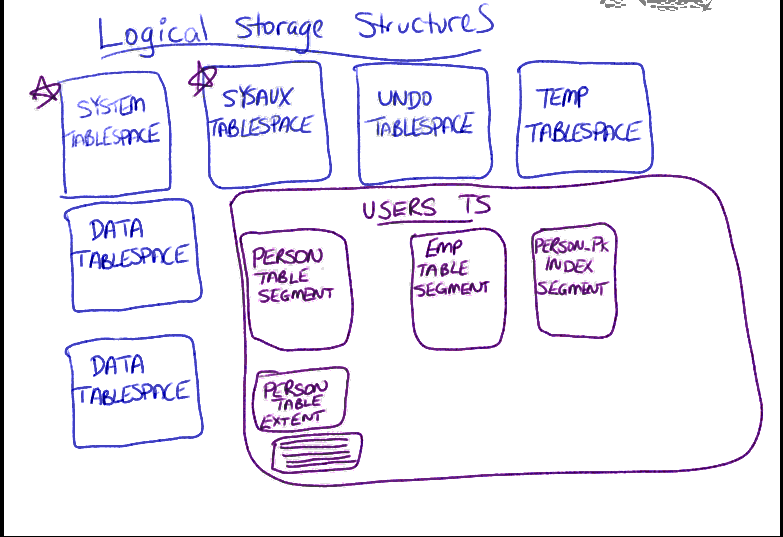 Logical Storage Structures
SYSTEM
TABLESPACE
SYSAUX
TABLESPACE
UNDO
TABLESPACE
TEMP
TABLESPACE
DATA
TABLESPACE
DATA
TABLESPACE
USERS TS
PERSON
TABLE
SEGMENT
EMP
TABLE
SEGMENT
PERSON_PK
INDEX
SEGMENT
PERSON
TABLE
EXTENT